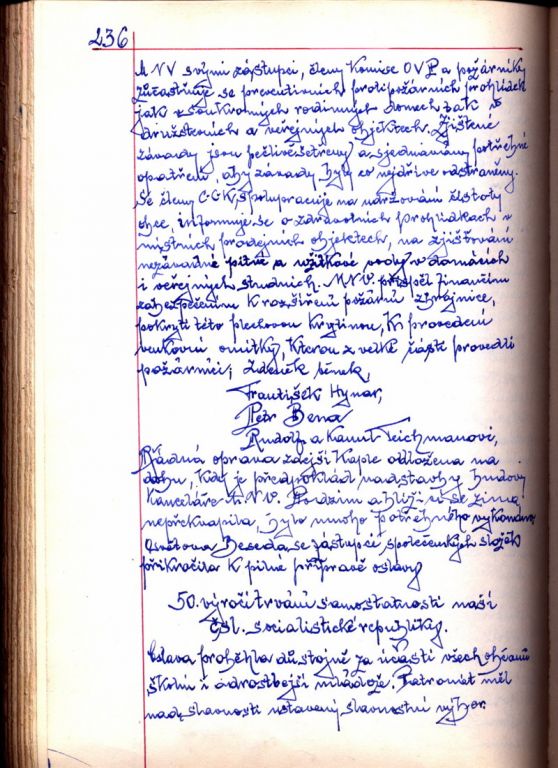 236
MNV svými zástupci, členy komise OVP a požárníky
zúčastňuje se preventivních protipožárních prohlídek
jak v soukromých rodinných domech tak v
družstevních a veřejných objektech. Zjištěné
závady jsou pečlivě šetřeny a sjednávány potřebné
opatření, aby závady byly co nejdříve odstraněny.
Se členy ČČK, spolupracuje na udržování čistoty
obce, informuje se o zdravotních prohlídkách v
místních prodejních objektech, na zjišťování
nezávadné pitné a užitkové vody v domácích
i veřejných studních. MNV. přispěl finančním
zabezpečením k rozšíření požární zbrojnice,
pokrytí této plechovou krytinou, k provedení
venkovní omítky, kterou z velké části provedli
požárníci; Zdeněk
František Hynar,
Petr Bená
Rudolf a Kamil Teichmanovi,
Řádná oprava zdejší kaple odložena na
dobu, kdy je předpoklad nadstavby budovy
kanceláře MNV. Podzim a blížící se zima
nepřekvapila, bylo mnoho potřebného vykonáno
Osvětová Beseda se zástupci společenských složek
přikročila k pilné přípravě oslavy
50. výročí trvání samostatnosti naší
čsl. socialistické republiky.
Oslava proběhla důstojně za účasti všech občanů
školní i odrostlejší mládeže. Patronát měl
nad slavností ustavený slavnostní výbor.